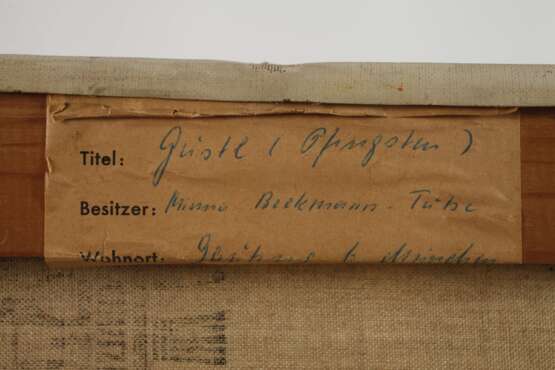 Titel: Güstl (Pfingsten)
Besitzer: Minna Beckmann-Tube
Wohnort: Gauting b München